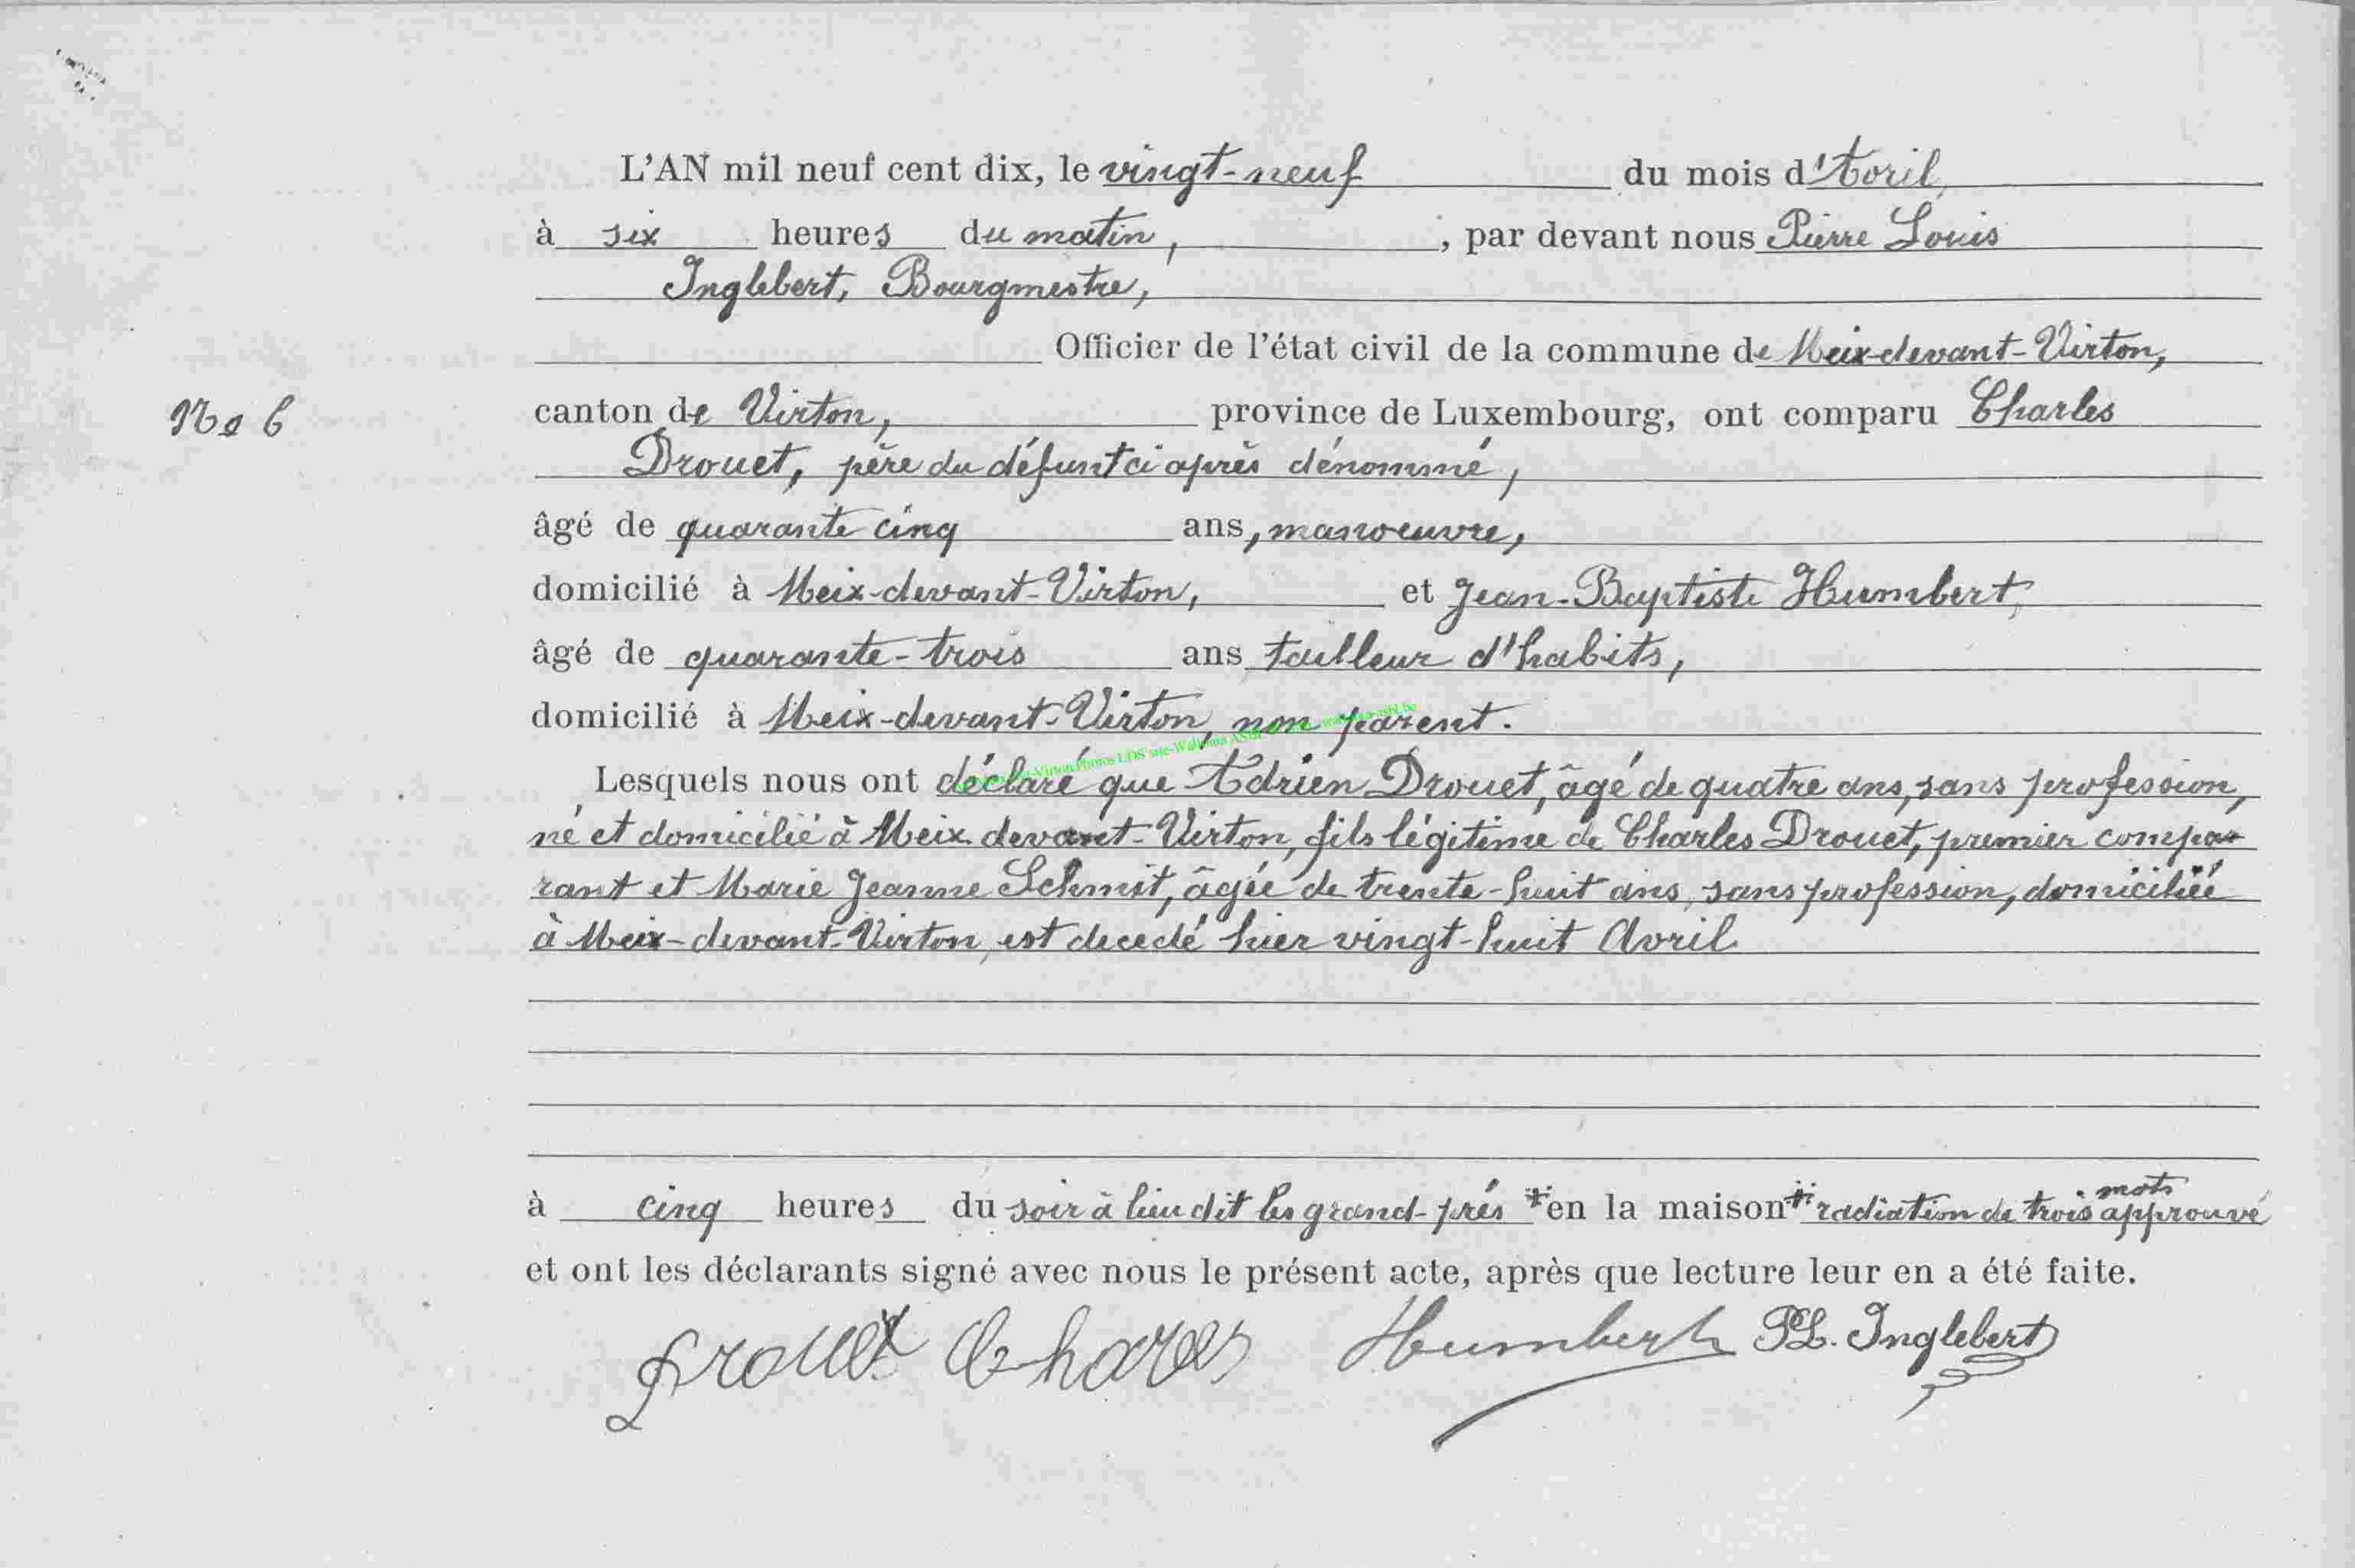 L'AN mil neuf cent dix, le vingt-neuf du mois d'Avril,
à six heures du matin, , par devant nous Pierre Louis
Inglebert, Bourgmestre,
Officier de l'état civil de la commune de Meix-devant-Virton,
No 6
canton de Virton, province de Luxembourg, ont comparu Charles
Drouet, père du défunt ci après dénommé,
âgé de quarante cinq ans, manoeuvre,
domicilié à Meix-devant-Virton, et Jean-Baptiste Humbert,
âgé de quarante-trois ans tailleur d'habits,
domicilié à Meix-devant-Virton, non parent.
Lesquels nous ont déclaré que Adrien Drouet, âgé de quatre ans, sans profession,
né et domicilié à Meix devant-Virton, fils légitime de Charles Drouet, premier compa-
rant et Marie Jeanne Schmit, âgée de trente-huit ans, sans profession, domiciliée
à Meix-devant-Virton, est decedé hier vingt-huit Avril
à cinq heures du soir à lieu dit les grand-prés * en la maison * radiation de trois mots approuvé
et ont les déclarants signé avec nous le présent acte, après que lecture leur en a été faite.
Drouet Humbert PL. Inglebert